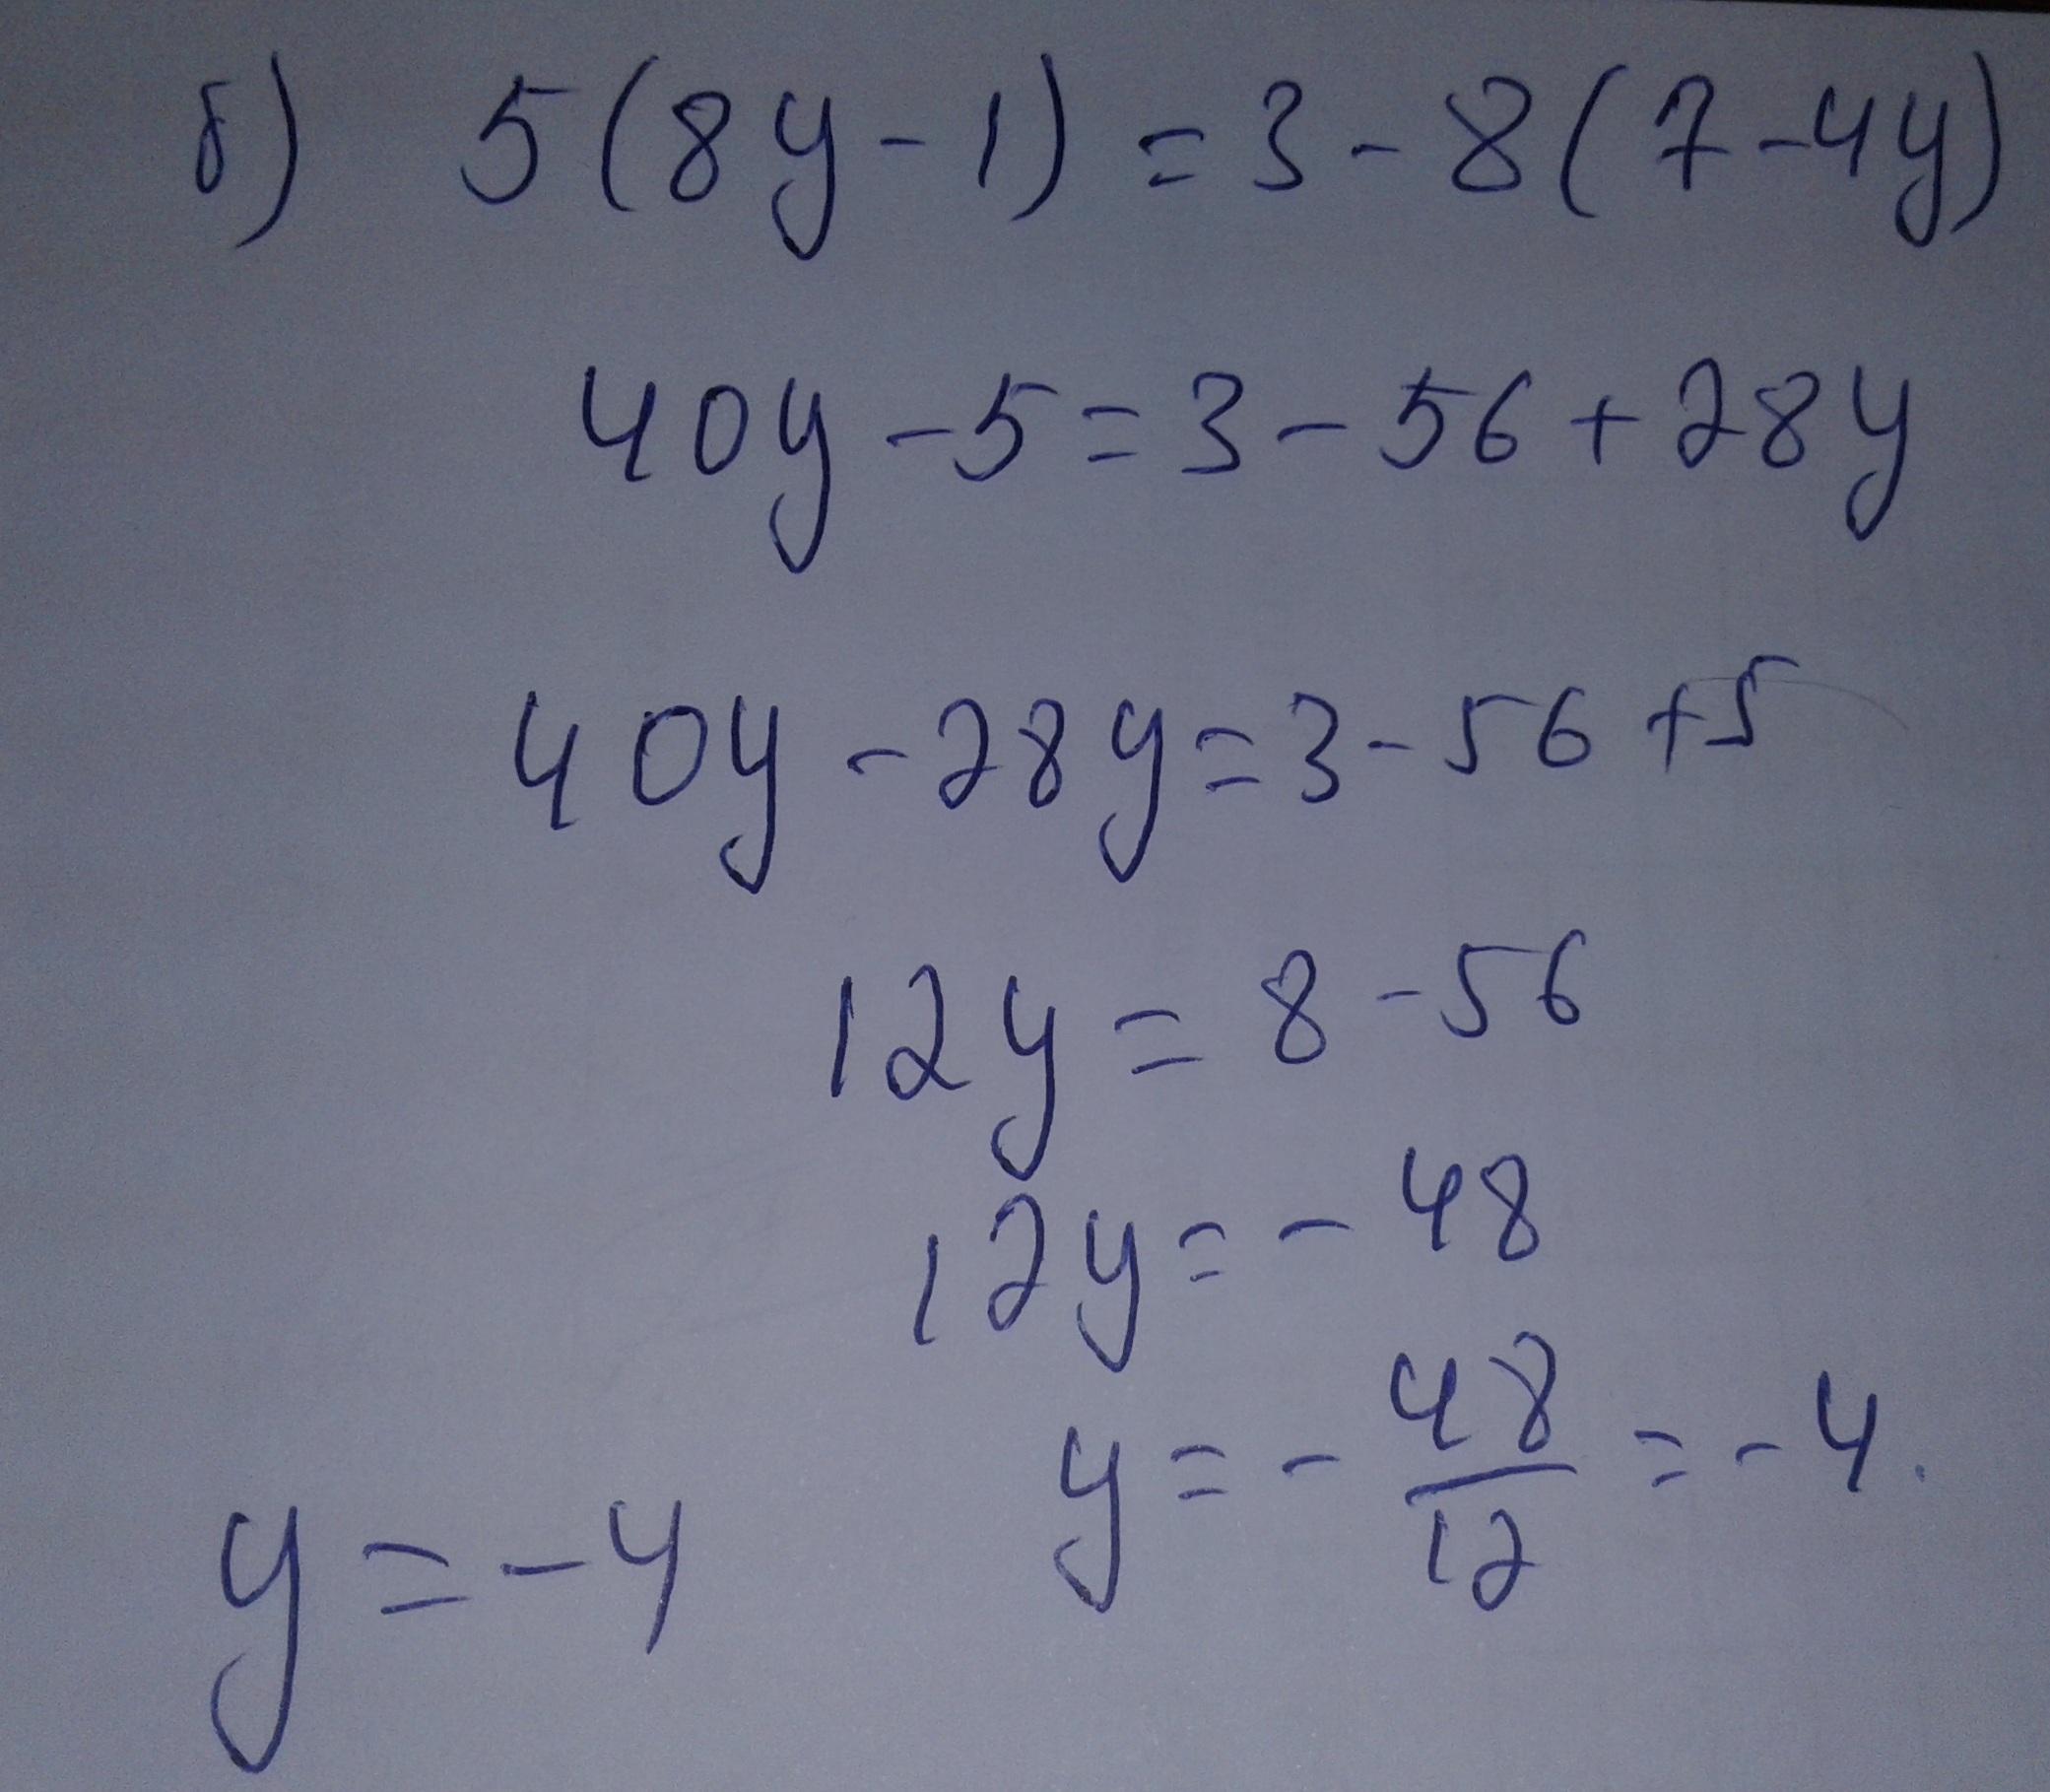 б) 5(8y-1)=3-8(7-4y)
40y-5=3-56+28y
40y-28y=3-56+5
12y=8-56
12y=-48
y=-48/12=-4.
y=-4